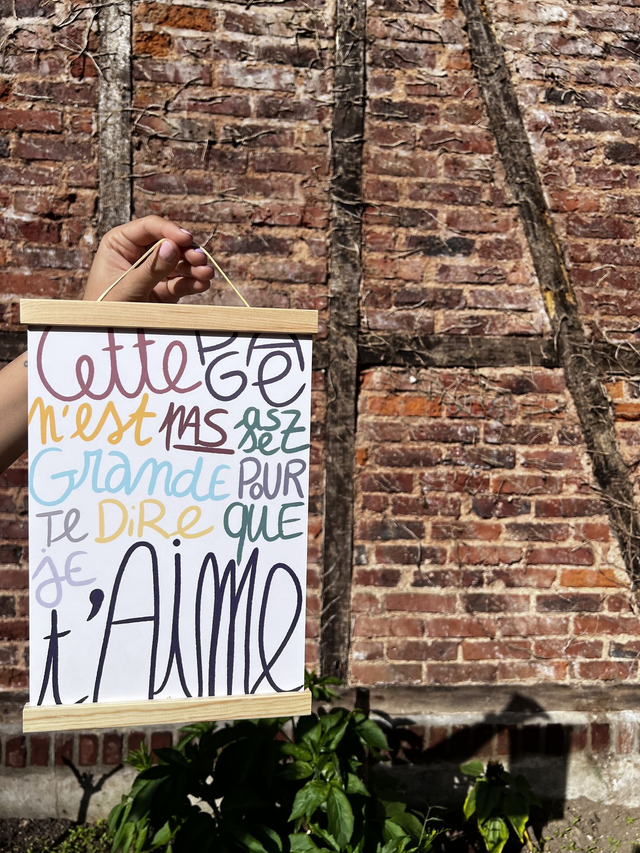 Cette PAGE
n'est PAS assez
Grande POUR
Te DiRe que
je
t'Aime